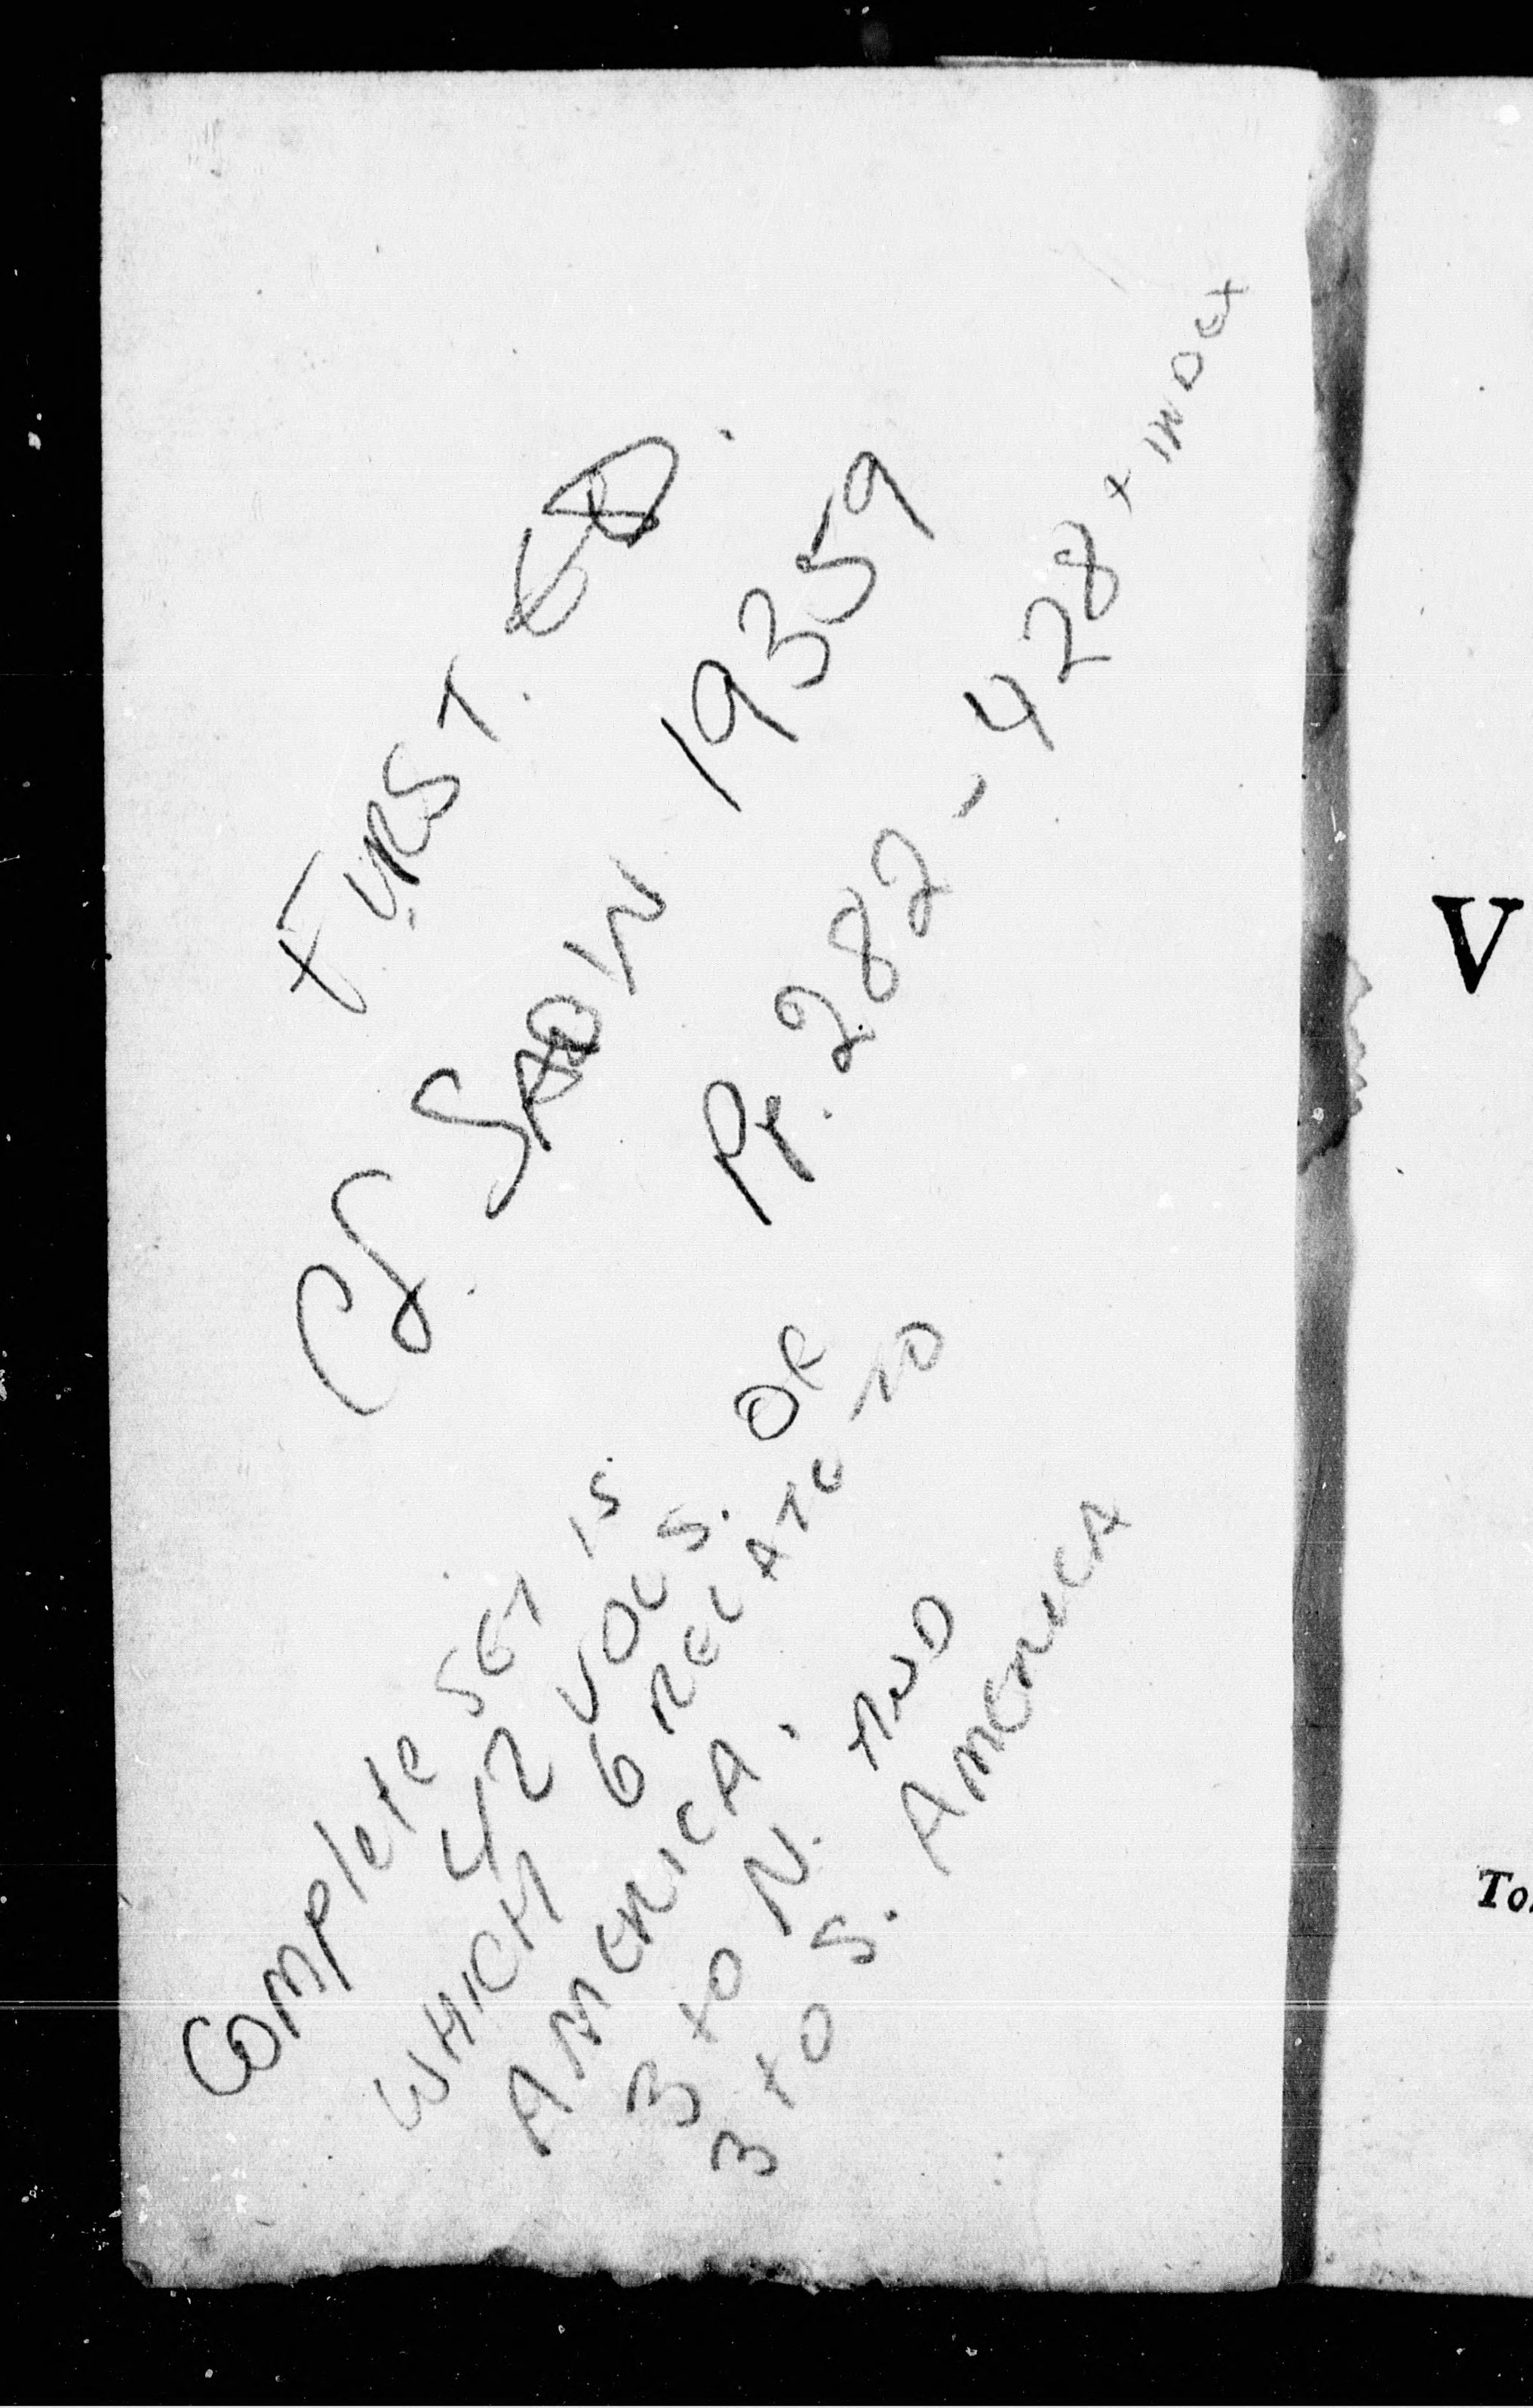 FIRST. ED.
Cf. SABIN 19359
Pp. 282-428 + INDEX
Complete SET IS
42 VOLS. OF
WHICH 6 RELATE TO
AMERICA.
3 to N. AND
3 to S. AMERICA
V
To